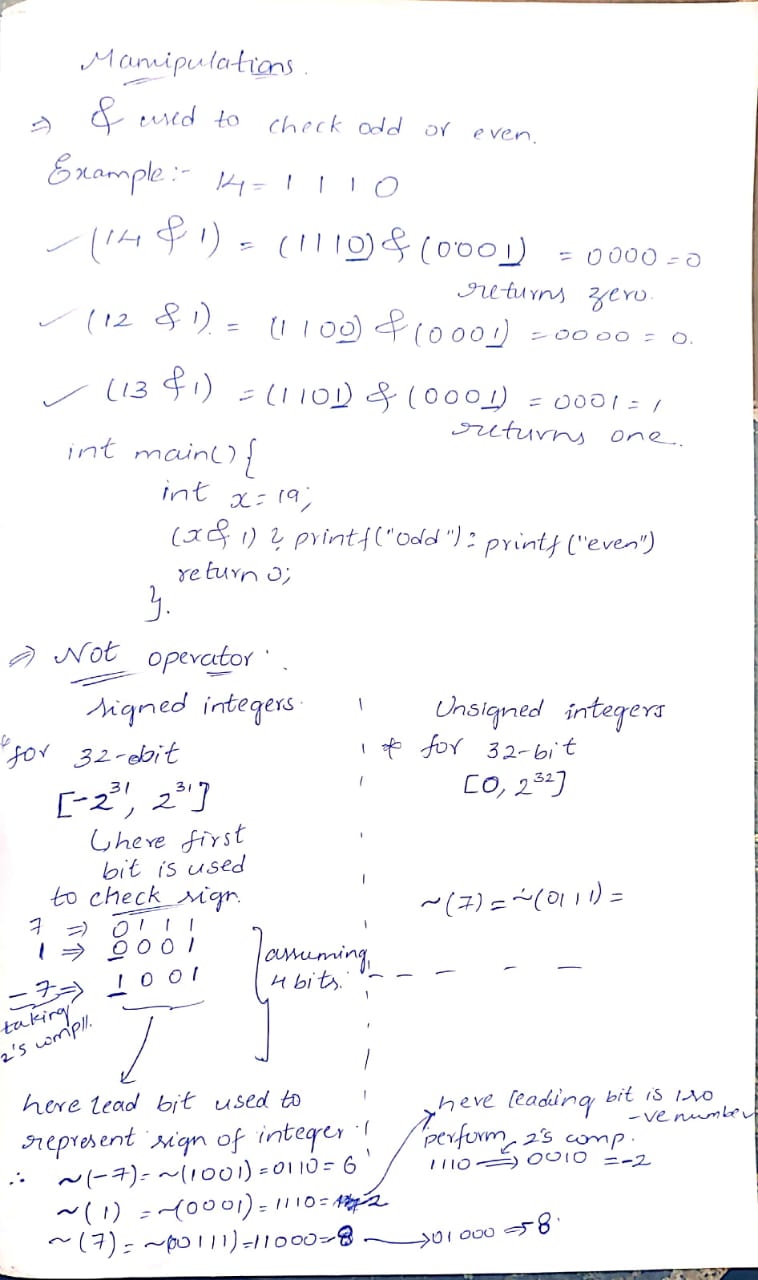 Manipulations.
⇒ & used to check odd or even.
Example:- 14 = 1 1 1 0
(14 & 1) = (1110) & (0001) = 0000 = 0
returns zero.
(12 & 1) = (1100) & (0001) = 0000 = 0.
(13 & 1) = (1101) & (0001) = 0001 = 1
returns one.
int main() {
int x = 19;
(x & 1) ? printf("odd") : printf("even")
return 0;
}.
⇒ Not operator.
signed integers
* for 32-bit
[-2^31, 2^31]
here first
bit is used
to check sign.
7 ⇒ 0111
1 ⇒ 0001
-7 ⇒ 1001
taking
2's compll.
assuming
4 bits.
here lead bit used to
represent sign of integer
∴ ~(-7) = ~(1001) = 0110 = 6
~(1) = ~(0001) = 1110 = -2
~(7) = ~(00111) = 11000 = -8 → 01000 = -8.
Unsigned integers
* for 32-bit
[0, 2^32]
~(7) = ~(0111) =
here leading bit is 1 so
-ve number
perform 2's comp.
1110 ⇒ 0010 = -2